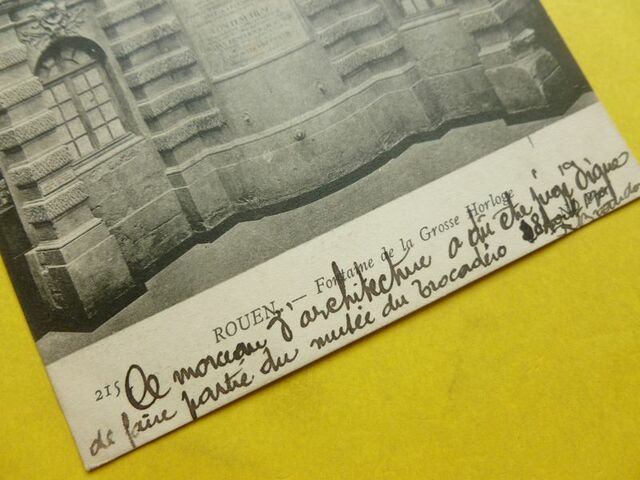 215 ROUEN. — Fontaine de la Grosse Horloge
Ce morceau d'architecture a dû être jugé digne
de faire partie du musée du Trocadéro